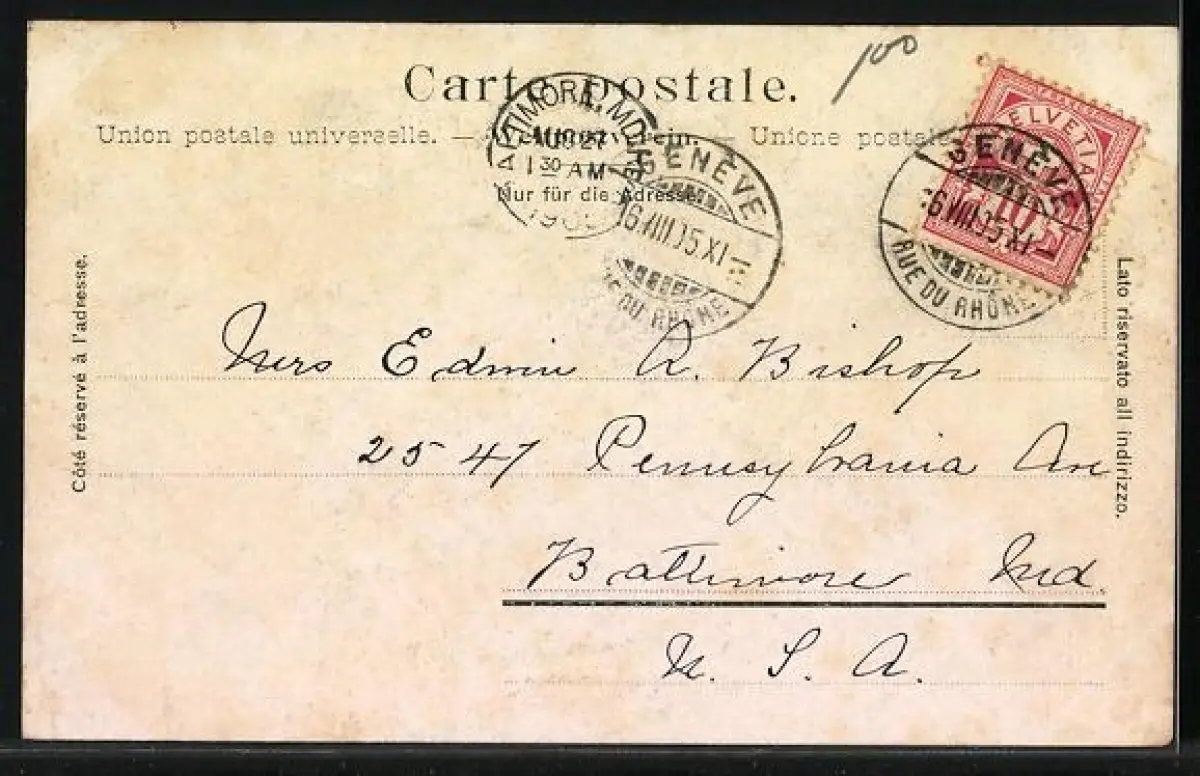 100
Carte postale.
Union postale universelle. — Weltpostverein. — Unione postale
Nur für die Adresse.
BALTIMORE, MD.
AUG 27
1 30 AM
190
GENÈVE
16 VIII 05 XI
RUE DU RHÔNE
HELVETIA
10
GENÈVE
16 VIII 05 XI
RUE DU RHÔNE
Côté réservé à l'adresse.
Lato riservato all indirizzo.
Mrs Edwin A. Bishop
2547 Pennsylvania Ave
Baltimore Md
U. S. A.